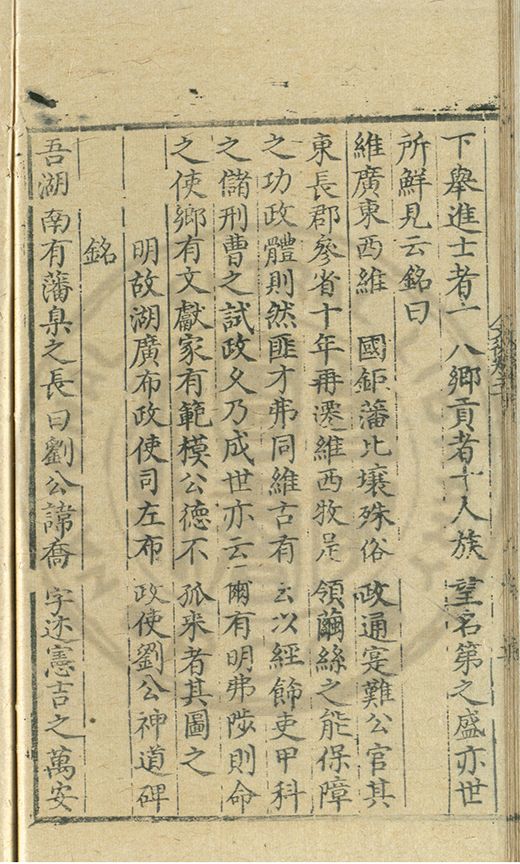 下舉進士者一八鄉貢者十人族望名第之盛亦世
所鮮見云銘曰
維廣東西維 國鉅藩比壤殊俗政通寔難公官其
東長郡參省十年再遷維西牧是領繭絲之能保障
之功政體則然匪才弗同維古有云以經飾吏甲科
之儲刑曹之試政文乃成世亦云爾有明弗陟則命
之使鄉有文獻家有範模公德不孤來者其圖之
明故湖廣布政使司左布政使劉公神道碑
銘
吾湖南有藩臬之長曰劉公諱喬字述憲吉之萬安